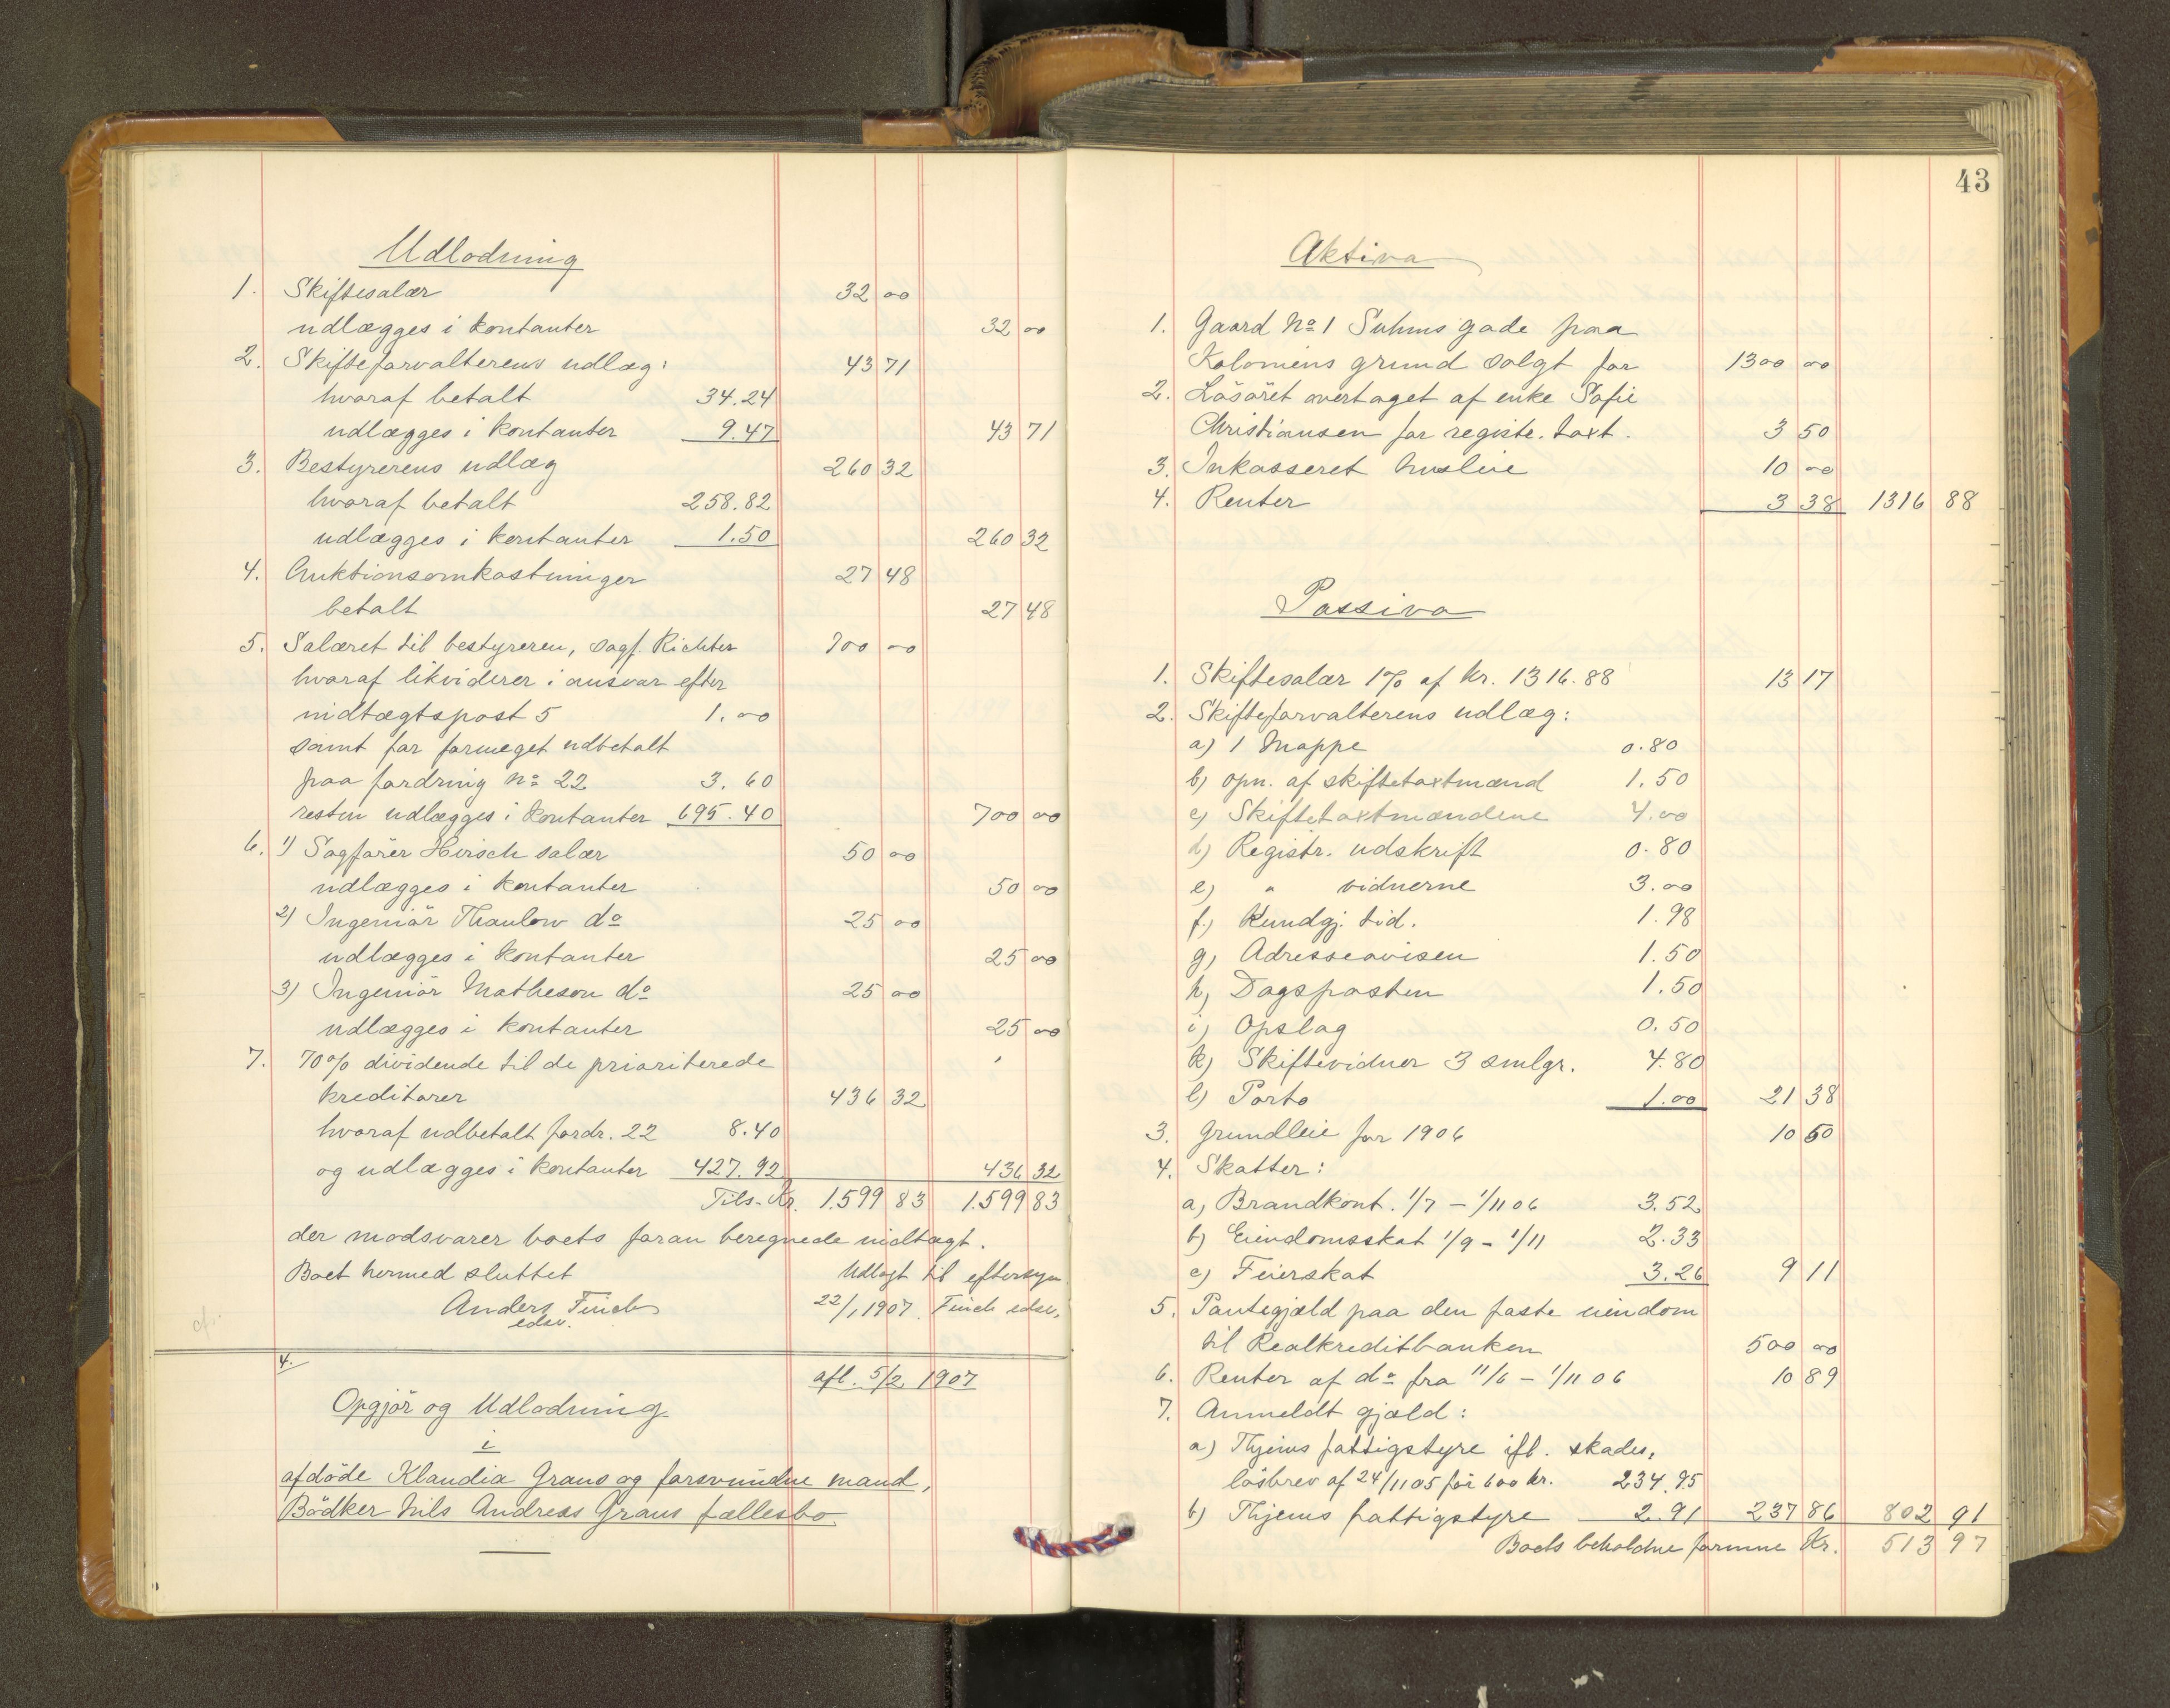 Udlodning
1. Skiftesalær 32 00
udlægges i kontanter 32 00
2. Skifteforvalterens udlæg: 43 71
hvoraf betalt 34.24
udlægges i kontanter 9.47 43 71
3. Bestyrerens udlæg 260 32
hvoraf betalt 258.82
udlægges i kontanter 1.50 260 32
4. Auktionsomkostninger 27 48
betalt 27 48
5. Salæret til bestyreren, sagf. Richter 700 00
hvoraf likviderer i ansvar efter
indtægtspost 5 1.00
samt for formeget udbetalt
paa fordring No 22 3.60
resten udlægges i kontanter 695.40 700 00
6. 1) Sagfører Hirsch salær 50 00
udlægges i kontanter 50 00
2) Ingeniör Thaulow do 25 00
udlægges i kontanter 25 00
3) Ingeniör Matheson do 25 00
udlægges i kontanter 25 00
7. 70% dividende til de prioriterede
kreditorer 436 32
hvoraf udbetalt fordr. 22 8.40
og udlægges i kontanter 427.92 436 32
Tils. Kr. 1.599 83 1.599 83
der modsvarer boets foran beregnede indtægt.
Boet hermed sluttet Udlagt til eftersyn
Anders Finch 22/1 1907. Finch edsv.
edsv.
4.
afl. 5/2 1907
Opgjör og Udlodning
i
afdöde Klaudia Graus og forsvundne mand,
Bödker Nils Andreas Graus fællesbo
43
Aktiva
1. Gaard No 1 Suhms gade paa
Kaloniens grund solgt for 1300 00
2. Lösöret overtaget af enke Sofie
Christiansen for registr. taxt. 3 50
3. Inkasseret husleie 10 00
4. Renter 3 38 1316 88
Passiva
1. Skiftesalær 1% af Kr. 1316.88 13 17
2. Skifteforvalterens udlæg:
a) 1 Mappe 0.80
b) opn. af skiftetaxtmænd 1.50
c) Skiftetaxtmændene 4.00
d) Registr. udskrift 0.80
e) " vidnerne 3.00
f) Kundgj. tid. 1.98
g) Adresseavisen 1.50
h) Dagsposten 1.50
i) Opslag 0.50
k) Skiftevidner 3 smlgr. 4.80
l) Porto 1.00 21 38
3. Grundleie for 1906 10 50
4. Skatter:
a) Brandkont. 1/7 - 1/11 06 3.52
b) Eiendomsskat 1/9 - 1/11 2.33
c) Feierskat 3.26 9 11
5. Pantegjæld paa den faste eiendom
til Realkreditbanken 500 00
6. Renter af do fra 11/6 - 1/11 06 10 89
7. Anmeldt gjæld:
a) Thjems fattigstyre ifl. skades,
lösbrev af 24/11 05 for 600 kr. 234.95
b) Thjems fattigstyre 2.91 237 86 802 91
Boets beholdne formue Kr. 513 97